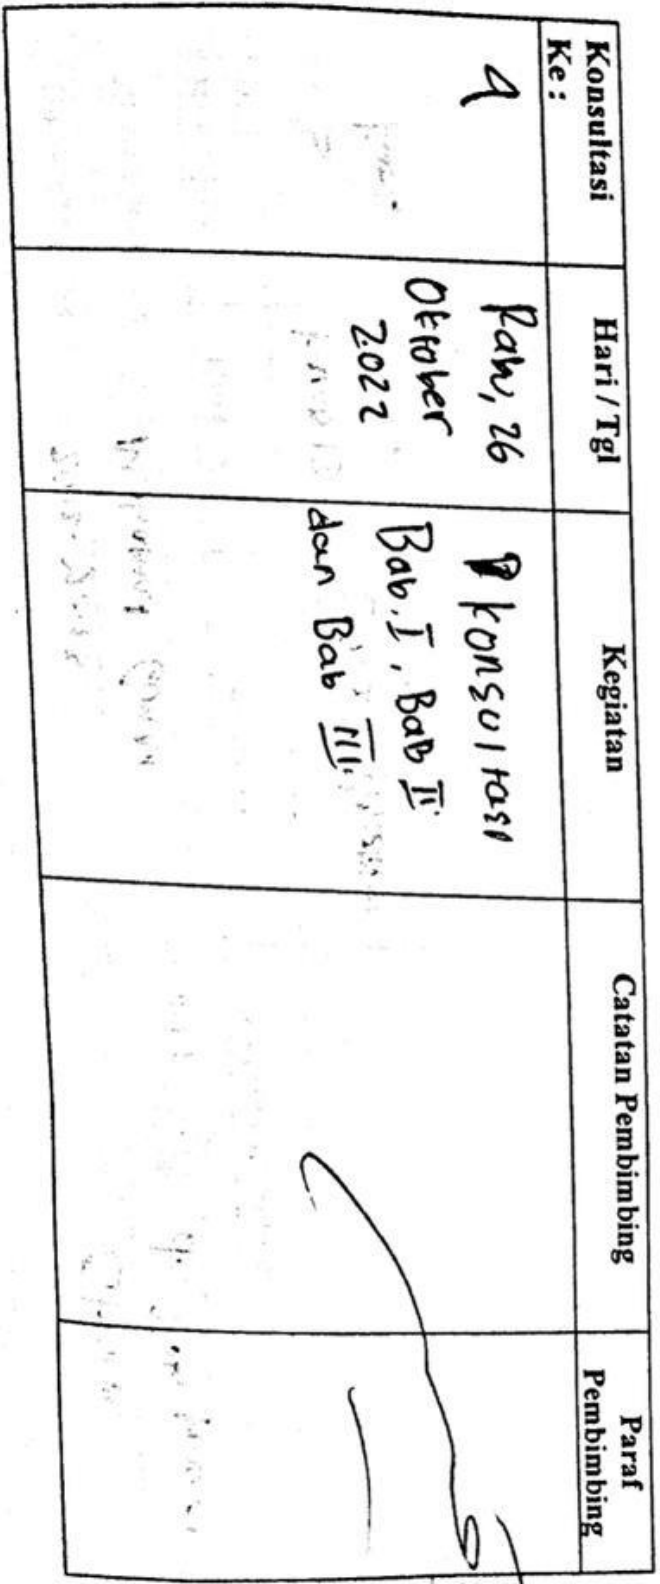 Konsultasi
Ke :
Hari / Tgl
Kegiatan
Catatan Pembimbing
Paraf
Pembimbing
4
Rabu, 26
Oktober
2022
Konsultasi
Bab. I, BaB II
dan Bab III.